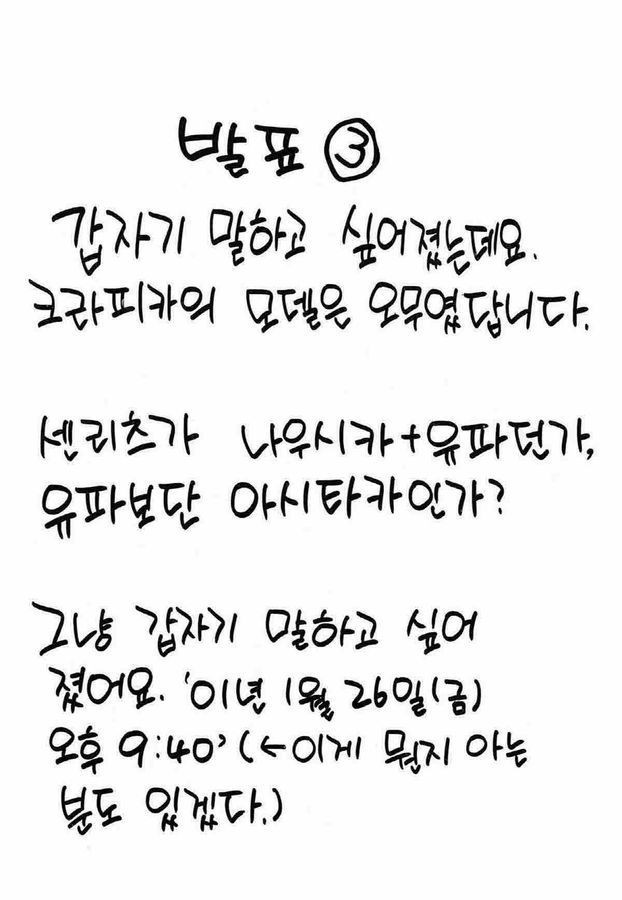 발표 ③
갑자기 말하고 싶어졌는데요.
크라피카의 모델은 오무였답니다.
센리츠가 나우시카+유파던가,
유파보단 아시타카인가?
그냥 갑자기 말하고 싶어
졌어요. '01년 1월 26일(금)
오후 9:40' (←이게 뭔지 아는
분도 있겠다.)